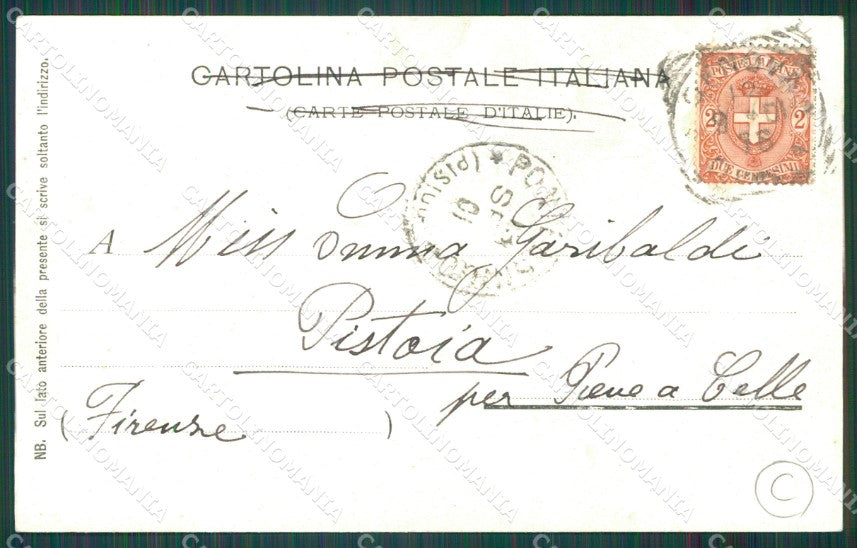 CARTOLINA POSTALE ITALIANA
(CARTE POSTALE D'ITALIE).
NB. Sul lato anteriore della presente si scrive soltanto l'indirizzo.
2 2
DUE CENTESIMI
10
A Miss Emma Garibaldi
Pistoia
per Pieve a Celle
(Firenze)
C
CARTOLINOMANIA